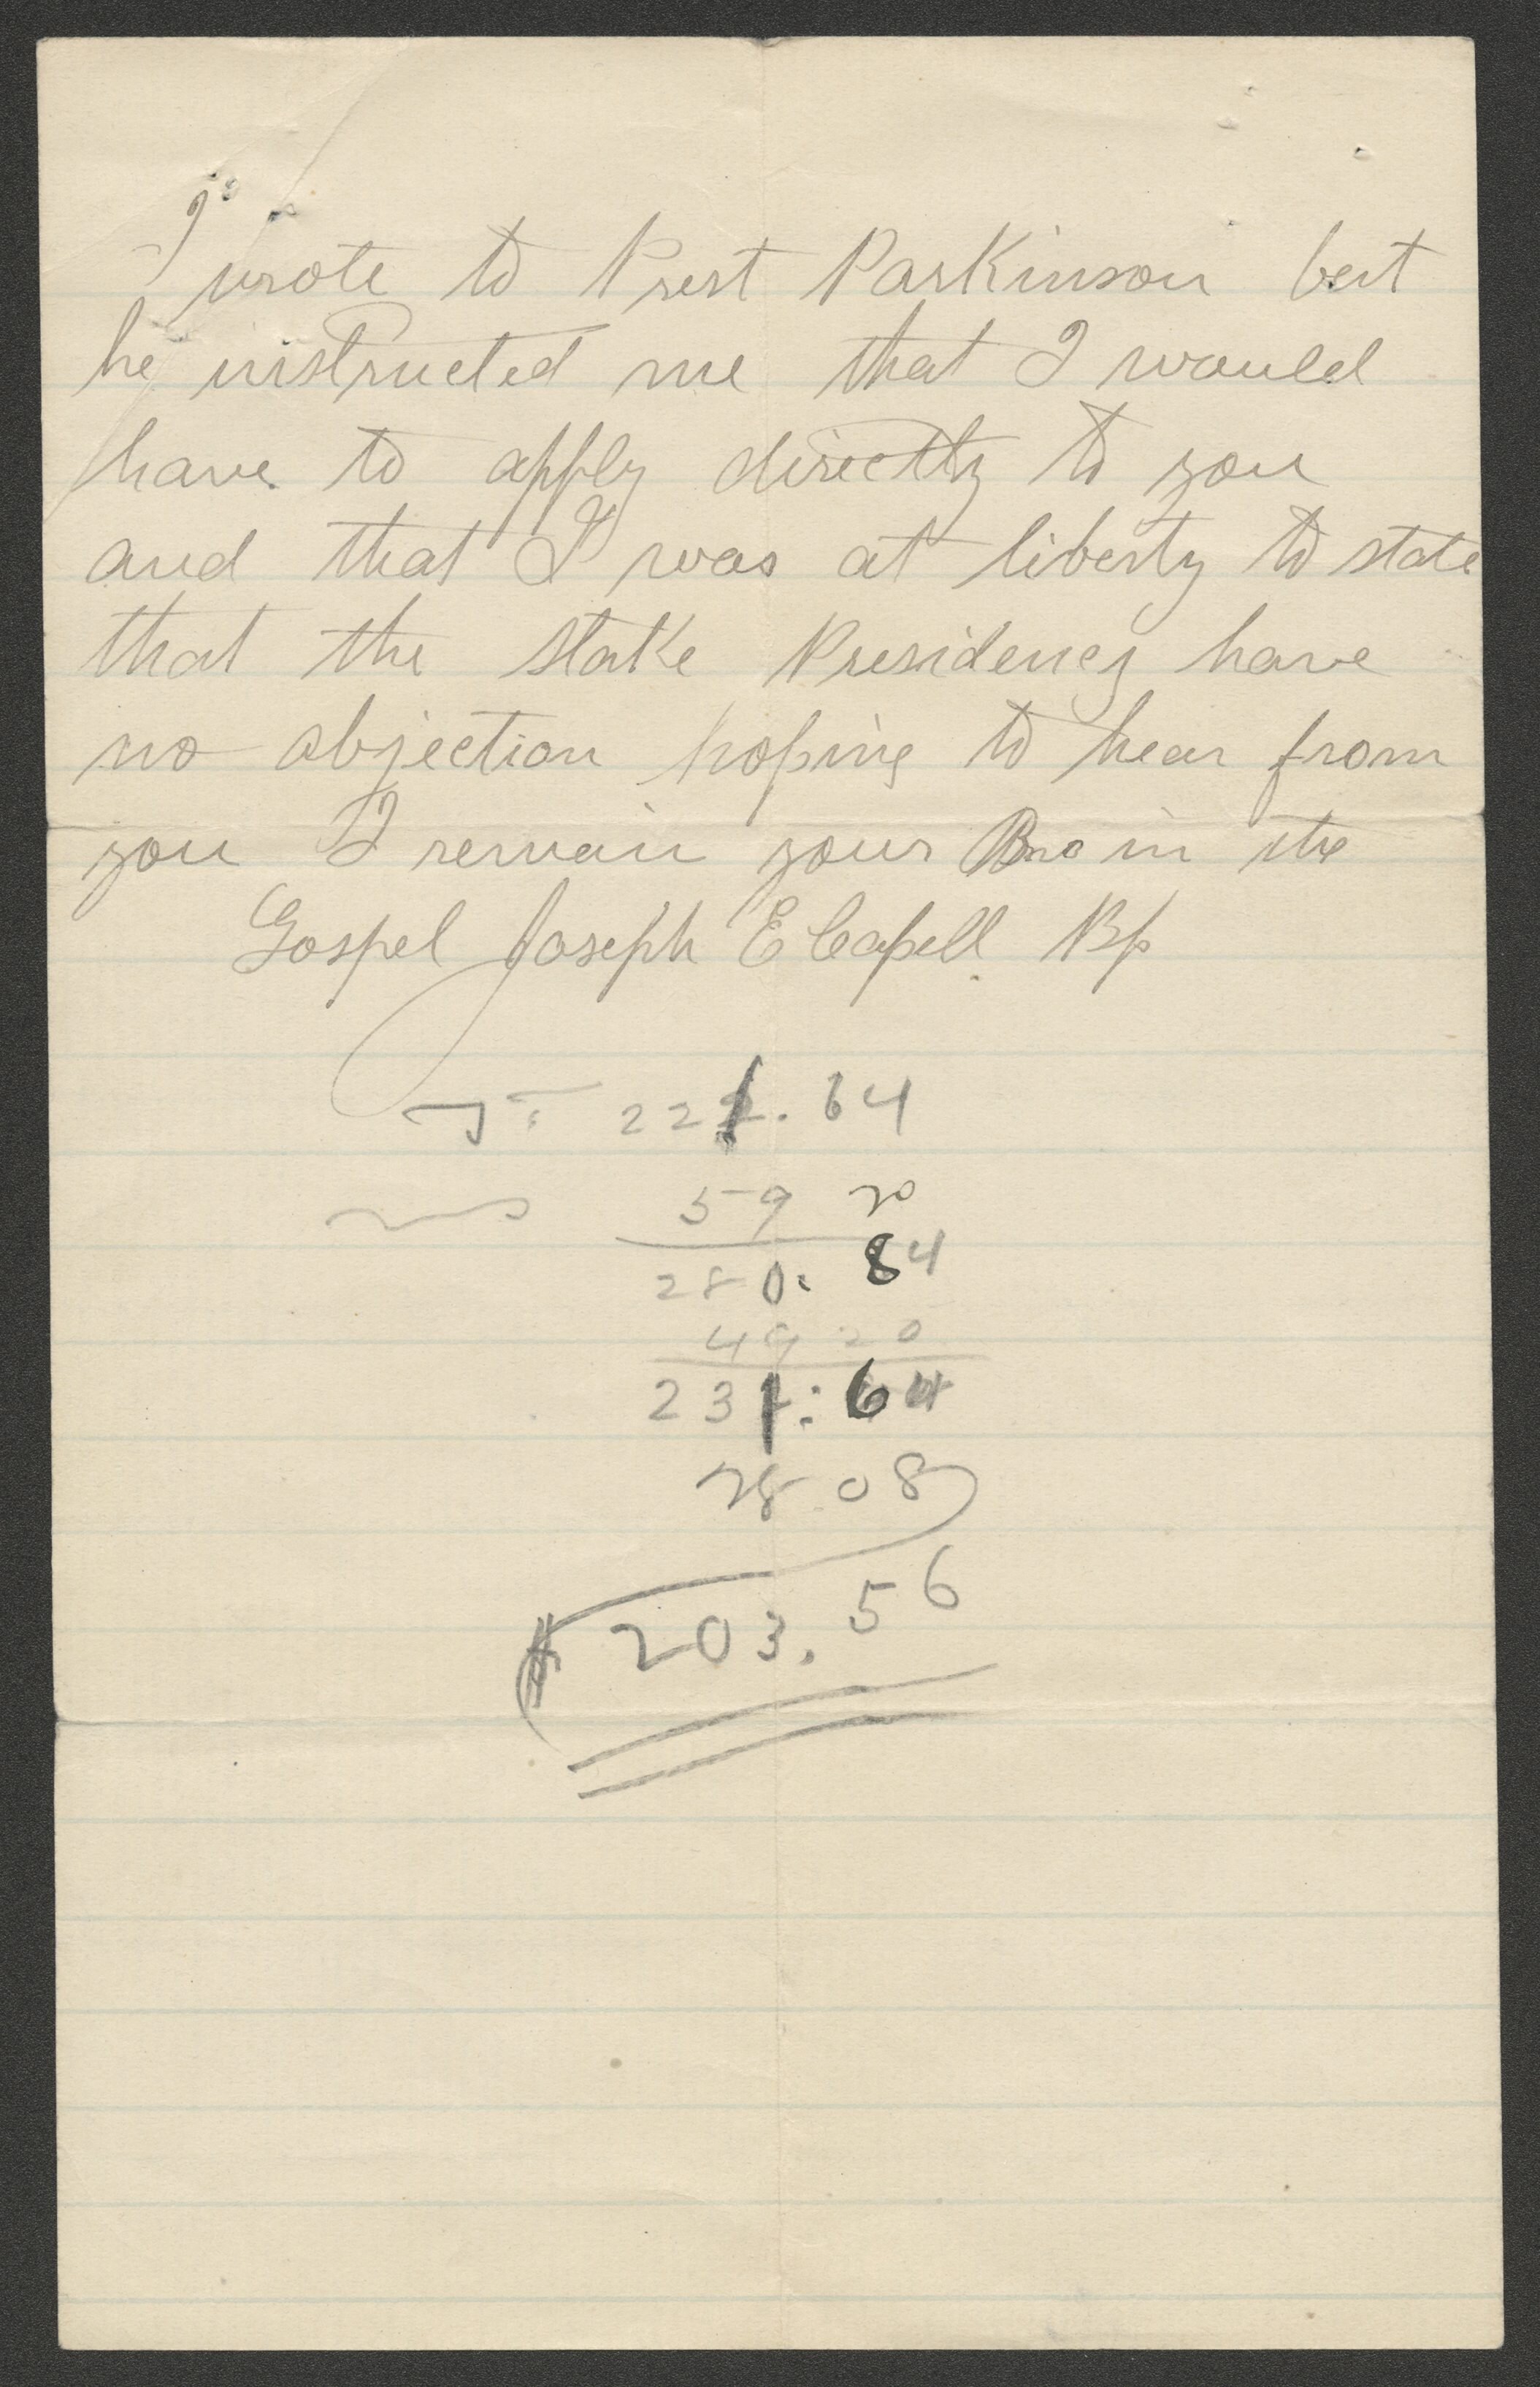 I wrote to Prest Parkinson but
he instructed me that I would
have to apply directly to you
and that I was at liberty to state
that the stake Presidency have
no objection hoping to hear from
you I remain your Bro in the
Gospel Joseph E Capell Bp
221.64
59 20
280. 84
49 20
231: 64
28 08
$ 203.56